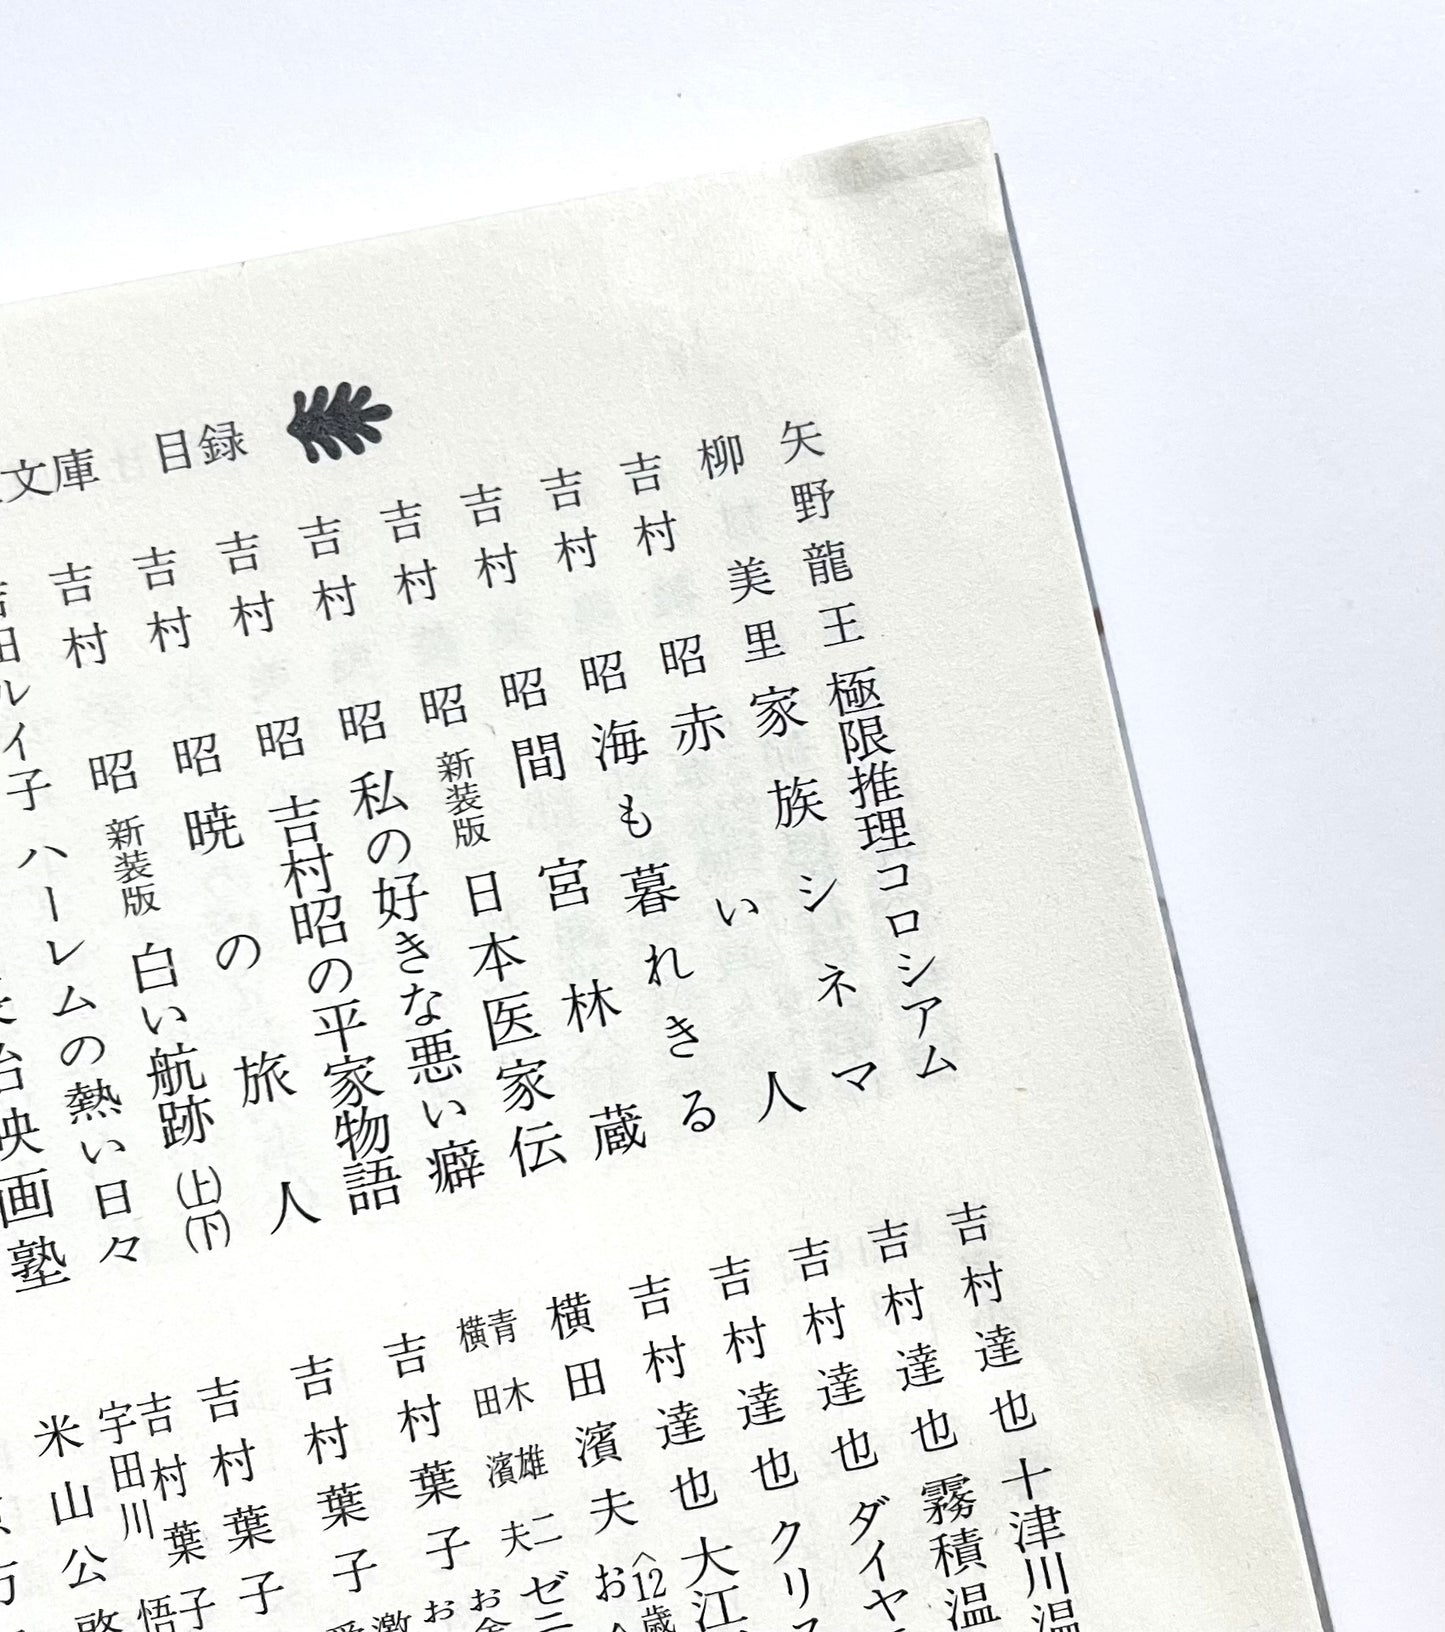 文庫 目録
矢野龍王 極限推理コロシアム
柳 美里 家族シネマ
吉村 昭 赤い人
吉村 昭 海も暮れきる
吉村 昭 間宮林蔵
吉村 昭 新装版 日本医家伝
吉村 昭 私の好きな悪い癖
吉村 昭 吉村昭の平家物語
吉村 昭 暁の旅人
吉村 昭 新装版 白い航跡(上)(下)
吉田ルイ子 ハーレムの熱い日々
映画塾
吉村達也 十津川温
吉村達也 霧積温
吉村達也 ダイヤ
吉村達也 クリス
吉村達也 大江
横田濱夫 〈12歳 お
青木雄二 横田濱夫 ゼニ お金
吉村葉子 お 激
吉村葉子 愛
吉村葉子
吉村葉子 宇田川 悟
米山公啓